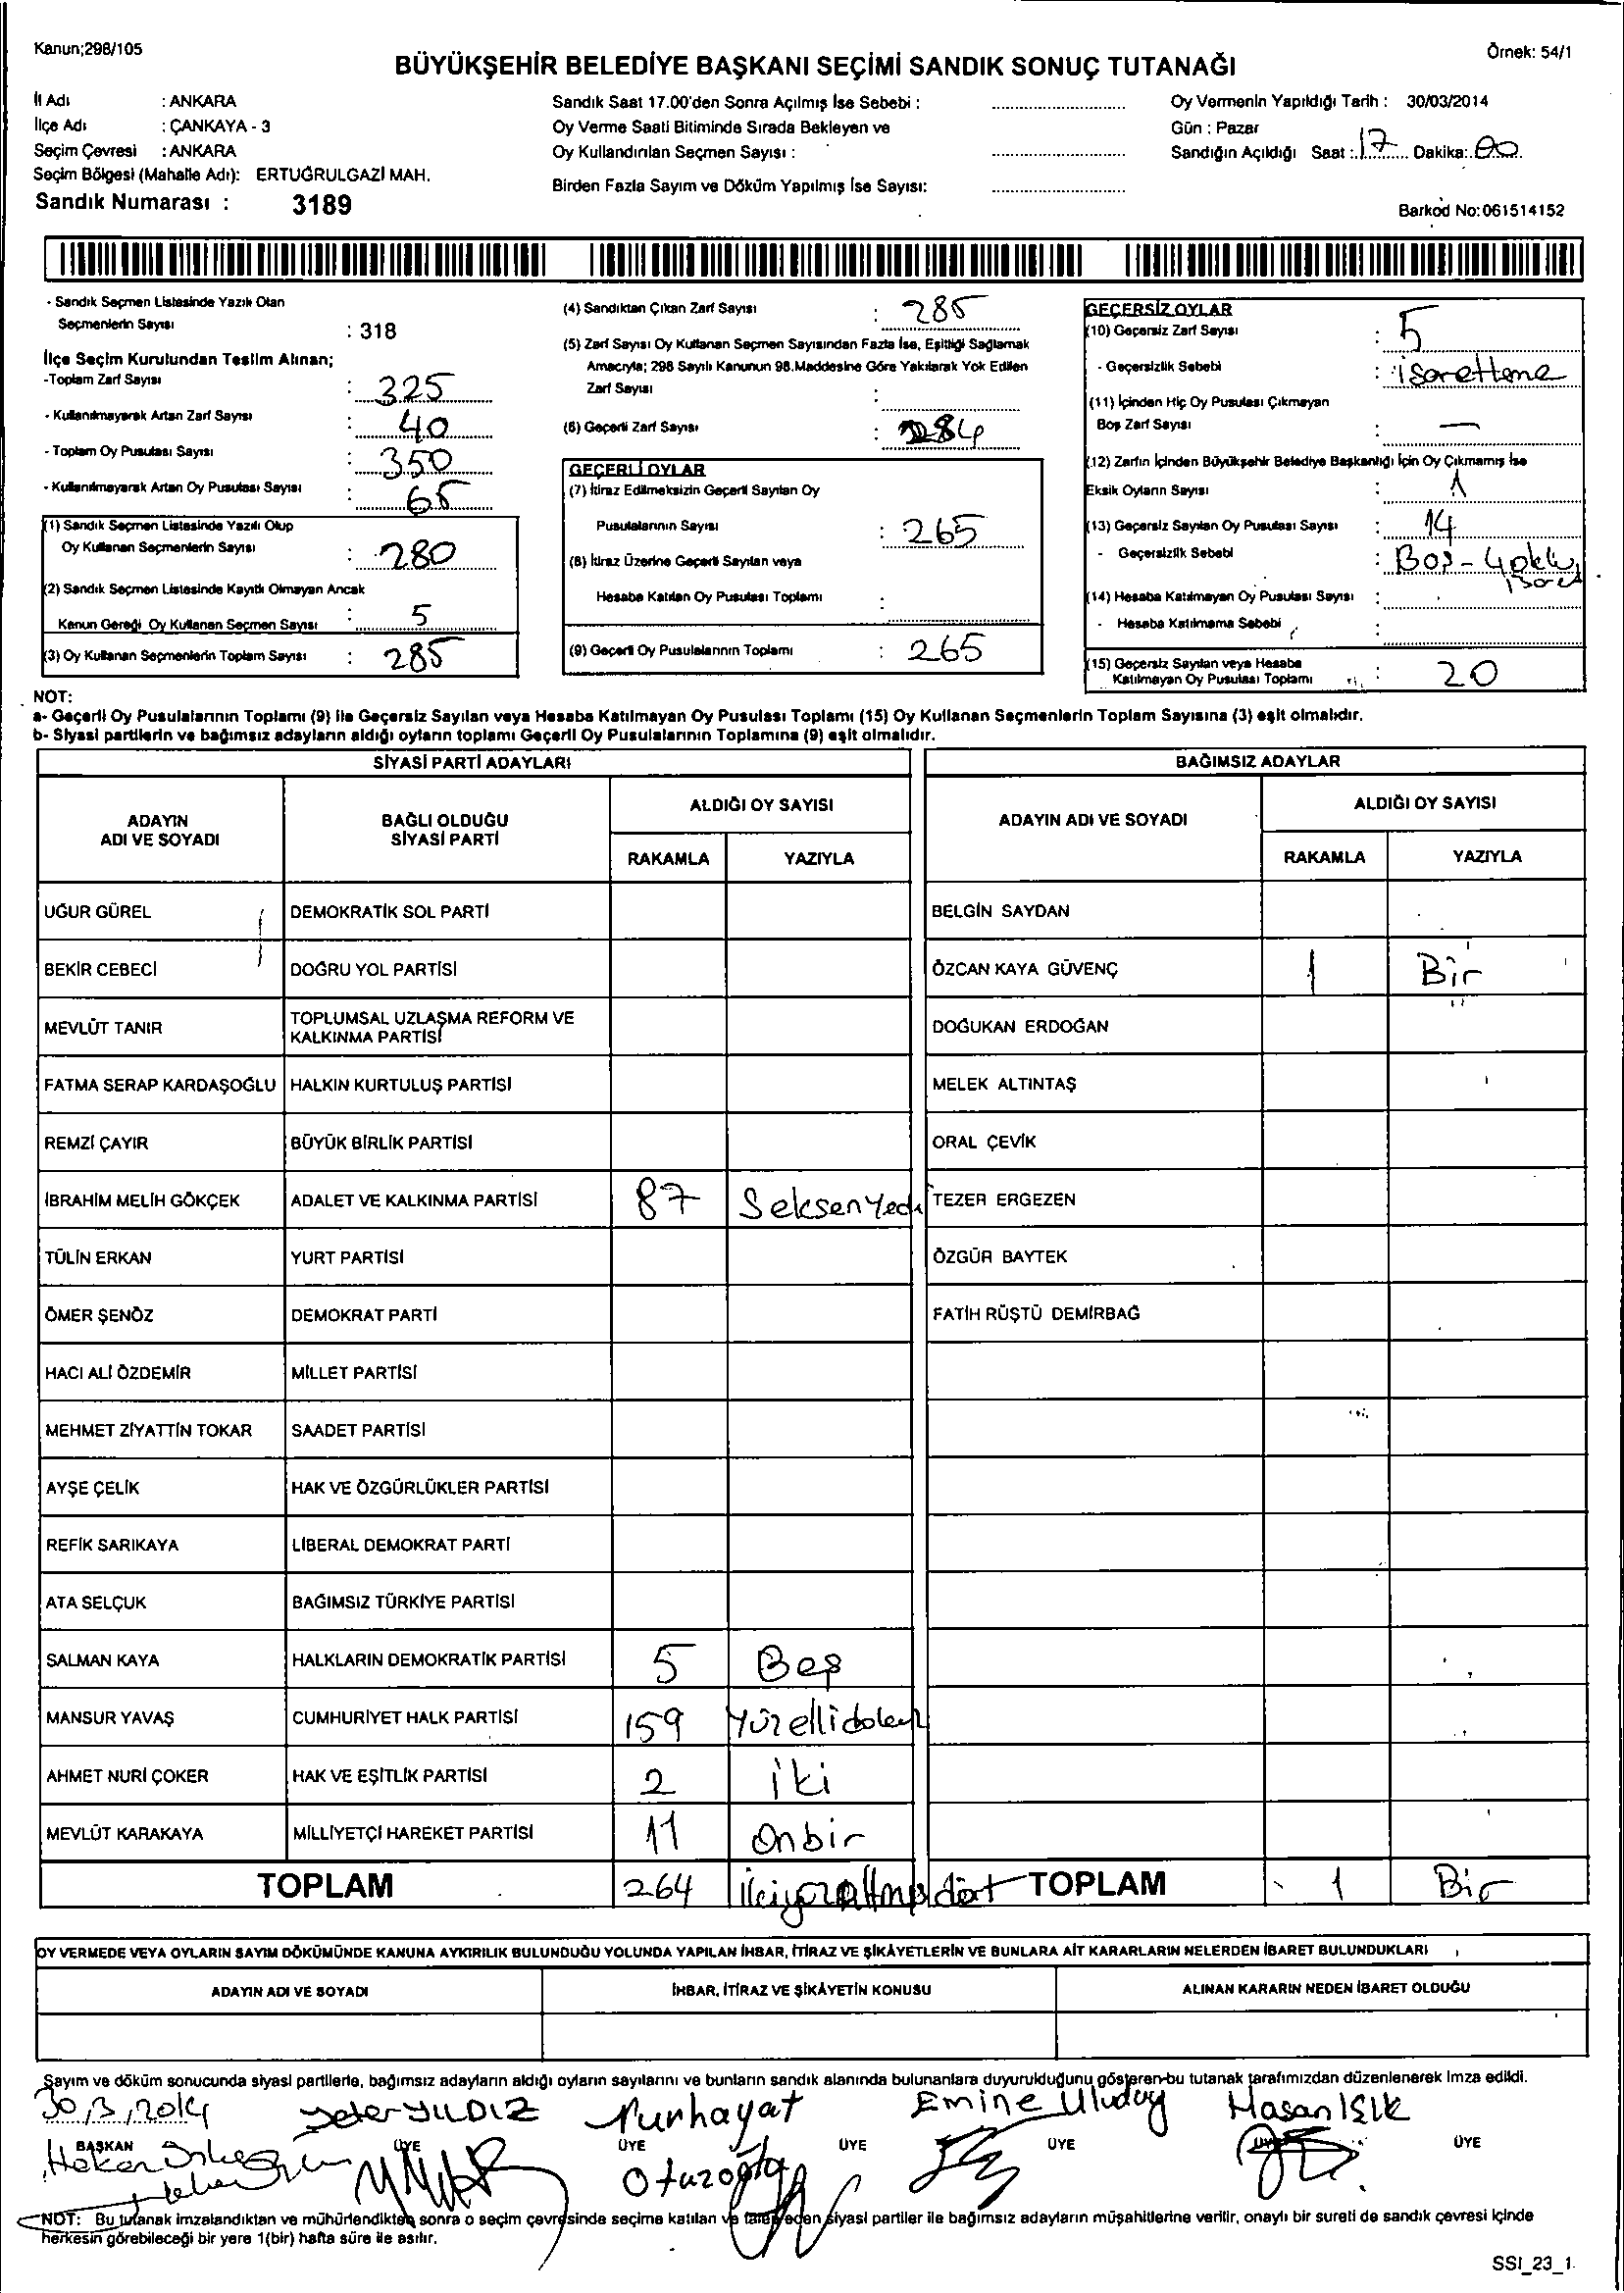 Kanun;298/105
Örnek: 54/1
BÜYÜKŞEHİR BELEDİYE BAŞKANI SEÇİMİ SANDIK SONUÇ TUTANAĞI
İl Adı : ANKARA
İlçe Adı : ÇANKAYA - 3
Seçim Çevresi : ANKARA
Seçim Bölgesi (Mahalle Adı): ERTUĞRULGAZİ MAH.
Sandık Numarası : 3189
Sandık Saat 17.00'den Sonra Açılmış İse Sebebi :
Oy Verme Saati Bitiminde Sırada Bekleyen ve
Oy Kullandırılan Seçmen Sayısı :
Birden Fazla Sayım ve Döküm Yapılmış İse Sayısı:
Oy Vermenin Yapıldığı Tarih : 30/03/2014
Gün : Pazar
Sandığın Açıldığı Saat : 17 Dakika: 00
Barkod No:061514152
- Sandık Seçmen Listesinde Yazılı Olan
Seçmenlerin Sayısı : 318
İlçe Seçim Kurulundan Teslim Alınan;
-Toplam Zarf Sayısı : 325
- Kullanılmayarak Artan Zarf Sayısı : 40
- Toplam Oy Pusulası Sayısı : 350
- Kullanılmayarak Artan Oy Pusulası Sayısı : 65
(1) Sandık Seçmen Listesinde Yazılı Olup
Oy Kullanan Seçmenlerin Sayısı : 280
(2) Sandık Seçmen Listesinde Kayıtlı Olmayan Ancak
Kanun Gereği Oy Kullanan Seçmen Sayısı : 5
(3) Oy Kullanan Seçmenlerin Toplam Sayısı : 285
(4) Sandıktan Çıkan Zarf Sayısı : 285
(5) Zarf Sayısı Oy Kullanan Seçmen Sayısından Fazla İse, Eşitliği Sağlamak
Amacıyla; 298 Sayılı Kanunun 98.Maddesine Göre Yakılarak Yok Edilen
Zarf Sayısı :
(6) Geçerli Zarf Sayısı : 284
GEÇERLİ OYLAR
(7) İtiraz Edilmeksizin Geçerli Sayılan Oy
Pusulalarının Sayısı : 265
(8) İtiraz Üzerine Geçerli Sayılan veya
Hesaba Katılan Oy Pusulası Toplamı :
(9) Geçerli Oy Pusulalarının Toplamı : 265
GEÇERSİZ OYLAR
(10) Geçersiz Zarf Sayısı : 5
- Geçersizlik Sebebi : işaretleme
(11) İçinden Hiç Oy Pusulası Çıkmayan
Boş Zarf Sayısı : —
(12) Zarfın İçinden Büyükşehir Belediye Başkanlığı İçin Oy Çıkmamış İse
Eksik Oyların Sayısı : 1
(13) Geçersiz Sayılan Oy Pusulası Sayısı : 14
- Geçersizlik Sebebi : Boş -
(14) Hesaba Katılmayan Oy Pusulası Sayısı :
- Hesaba Katılmama Sebebi :
(15) Geçersiz Sayılan veya Hesaba
Katılmayan Oy Pusulası Toplamı : 20
NOT:
a- Geçerli Oy Pusulalarının Toplamı (9) ile Geçersiz Sayılan veya Hesaba Katılmayan Oy Pusulası Toplamı (15) Oy Kullanan Seçmenlerin Toplam Sayısına (3) eşit olmalıdır.
b- Siyasi partilerin ve bağımsız adayların aldığı oyların toplamı Geçerli Oy Pusulalarının Toplamına (9) eşit olmalıdır.
SİYASİ PARTİ ADAYLARI BAĞIMSIZ ADAYLAR
ADAYIN
ADI VE SOYADI
BAĞLI OLDUĞU
SİYASİ PARTİ
ALDIĞI OY SAYISI
RAKAMLA YAZIYLA
ADAYIN ADI VE SOYADI
ALDIĞI OY SAYISI
RAKAMLA YAZIYLA
UĞUR GÜREL DEMOKRATİK SOL PARTİ BELGİN SAYDAN
BEKİR CEBECİ DOĞRU YOL PARTİSİ ÖZCAN KAYA GÜVENÇ 1 Bir
MEVLÜT TANIR TOPLUMSAL UZLAŞMA REFORM VE
KALKINMA PARTİSİ DOĞUKAN ERDOĞAN
FATMA SERAP KARDAŞOĞLU HALKIN KURTULUŞ PARTİSİ MELEK ALTINTAŞ
REMZİ ÇAYIR BÜYÜK BİRLİK PARTİSİ ORAL ÇEVİK
İBRAHİM MELİH GÖKÇEK ADALET VE KALKINMA PARTİSİ 87 Seksenyedi TEZER ERGEZEN
TÜLİN ERKAN YURT PARTİSİ ÖZGÜR BAYTEK
ÖMER ŞENÖZ DEMOKRAT PARTİ FATİH RÜŞTÜ DEMİRBAĞ
HACI ALİ ÖZDEMİR MİLLET PARTİSİ
MEHMET ZİYATTİN TOKAR SAADET PARTİSİ
AYŞE ÇELİK HAK VE ÖZGÜRLÜKLER PARTİSİ
REFİK SARIKAYA LİBERAL DEMOKRAT PARTİ
ATA SELÇUK BAĞIMSIZ TÜRKİYE PARTİSİ
SALMAN KAYA HALKLARIN DEMOKRATİK PARTİSİ 5 Beş
MANSUR YAVAŞ CUMHURİYET HALK PARTİSİ 159 Yüzellidokuz
AHMET NURİ ÇOKER HAK VE EŞİTLİK PARTİSİ 2 iki
MEVLÜT KARAKAYA MİLLİYETÇİ HAREKET PARTİSİ 11 Onbir
TOPLAM 264 ikiyüzaltmışdört TOPLAM 1 Bir
OY VERMEDE VEYA OYLARIN SAYIM DÖKÜMÜNDE KANUNA AYKIRILIK BULUNDUĞU YOLUNDA YAPILAN İHBAR, İTİRAZ VE ŞİKÂYETLERİN VE BUNLARA AİT KARARLARIN NELERDEN İBARET BULUNDUKLARI
ADAYIN ADI VE SOYADI İHBAR, İTİRAZ VE ŞİKÂYETİN KONUSU ALINAN KARARIN NEDEN İBARET OLDUĞU
Sayım ve döküm sonucunda siyasi partilerle, bağımsız adayların aldığı oyların sayılarını ve bunların sandık alanında bulunanlara duyurulduğunu gösteren bu tutanak tarafımızdan düzenlenerek imza edildi.
30/3/2014 Yeter YILDIZ Nurhayat Emine Uludoy Hasan IŞIK
BAŞKAN ÜYE ÜYE ÜYE ÜYE ÜYE ÜYE
Otuzoğlu
NOT: Bu tutanak imzalandıktan ve mühürlendikten sonra o seçim çevresinde seçime katılan ve talep eden siyasi partiler ile bağımsız adayların müşahitlerine verilir, onaylı bir sureti de sandık çevresi içinde
herkesin görebileceği bir yere 1(bir) hafta süre ile asılır.
SSI_23_1